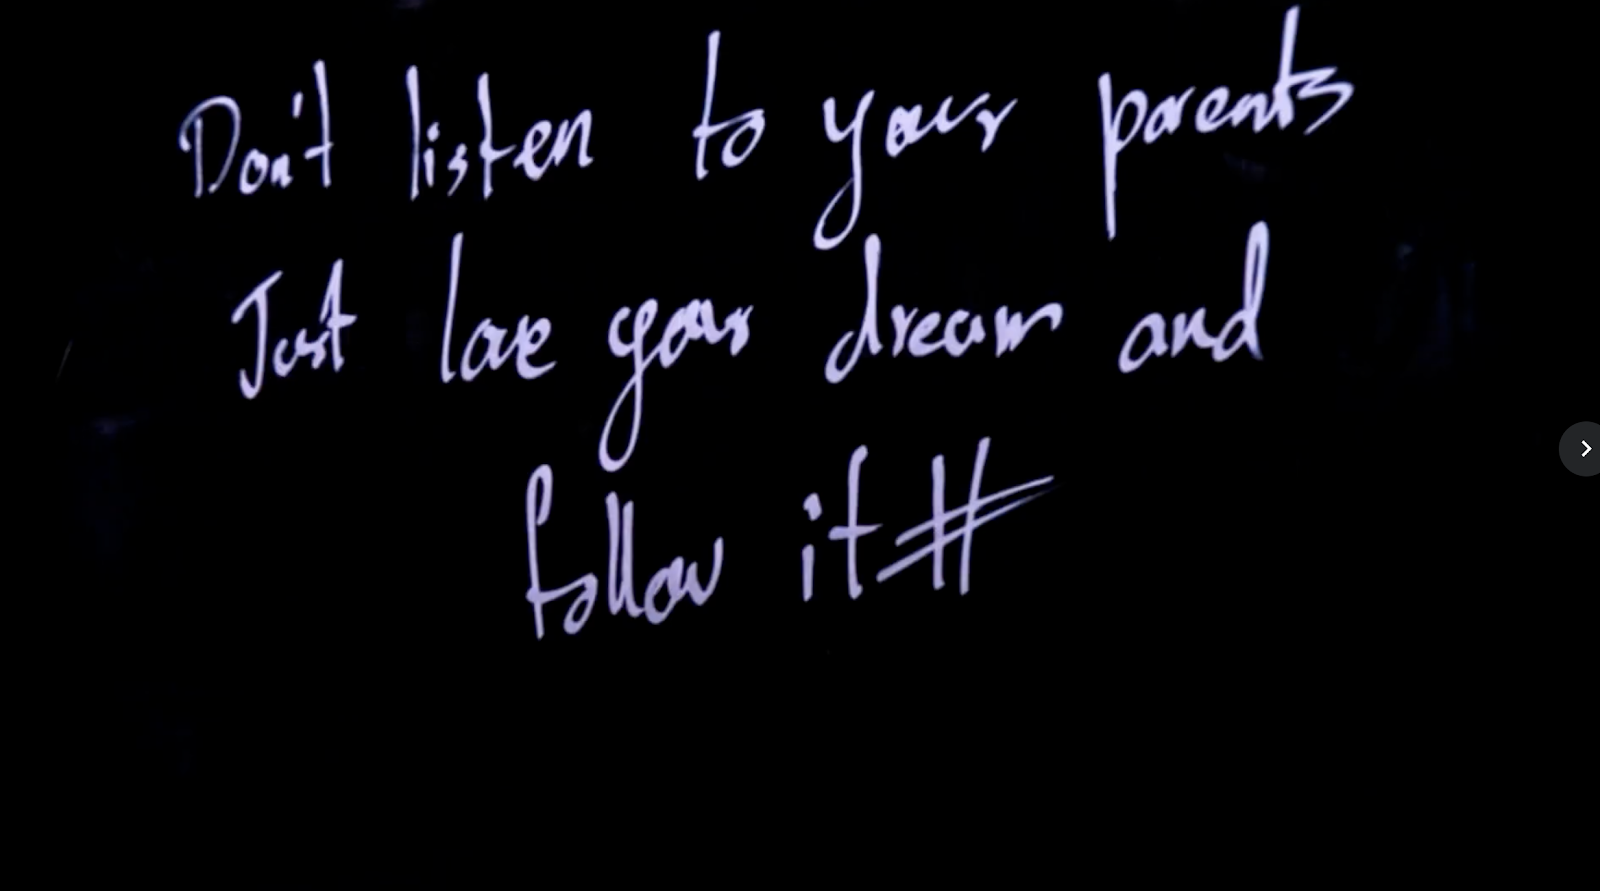 Don't listen to your parents
Just love your dream and
follow it#